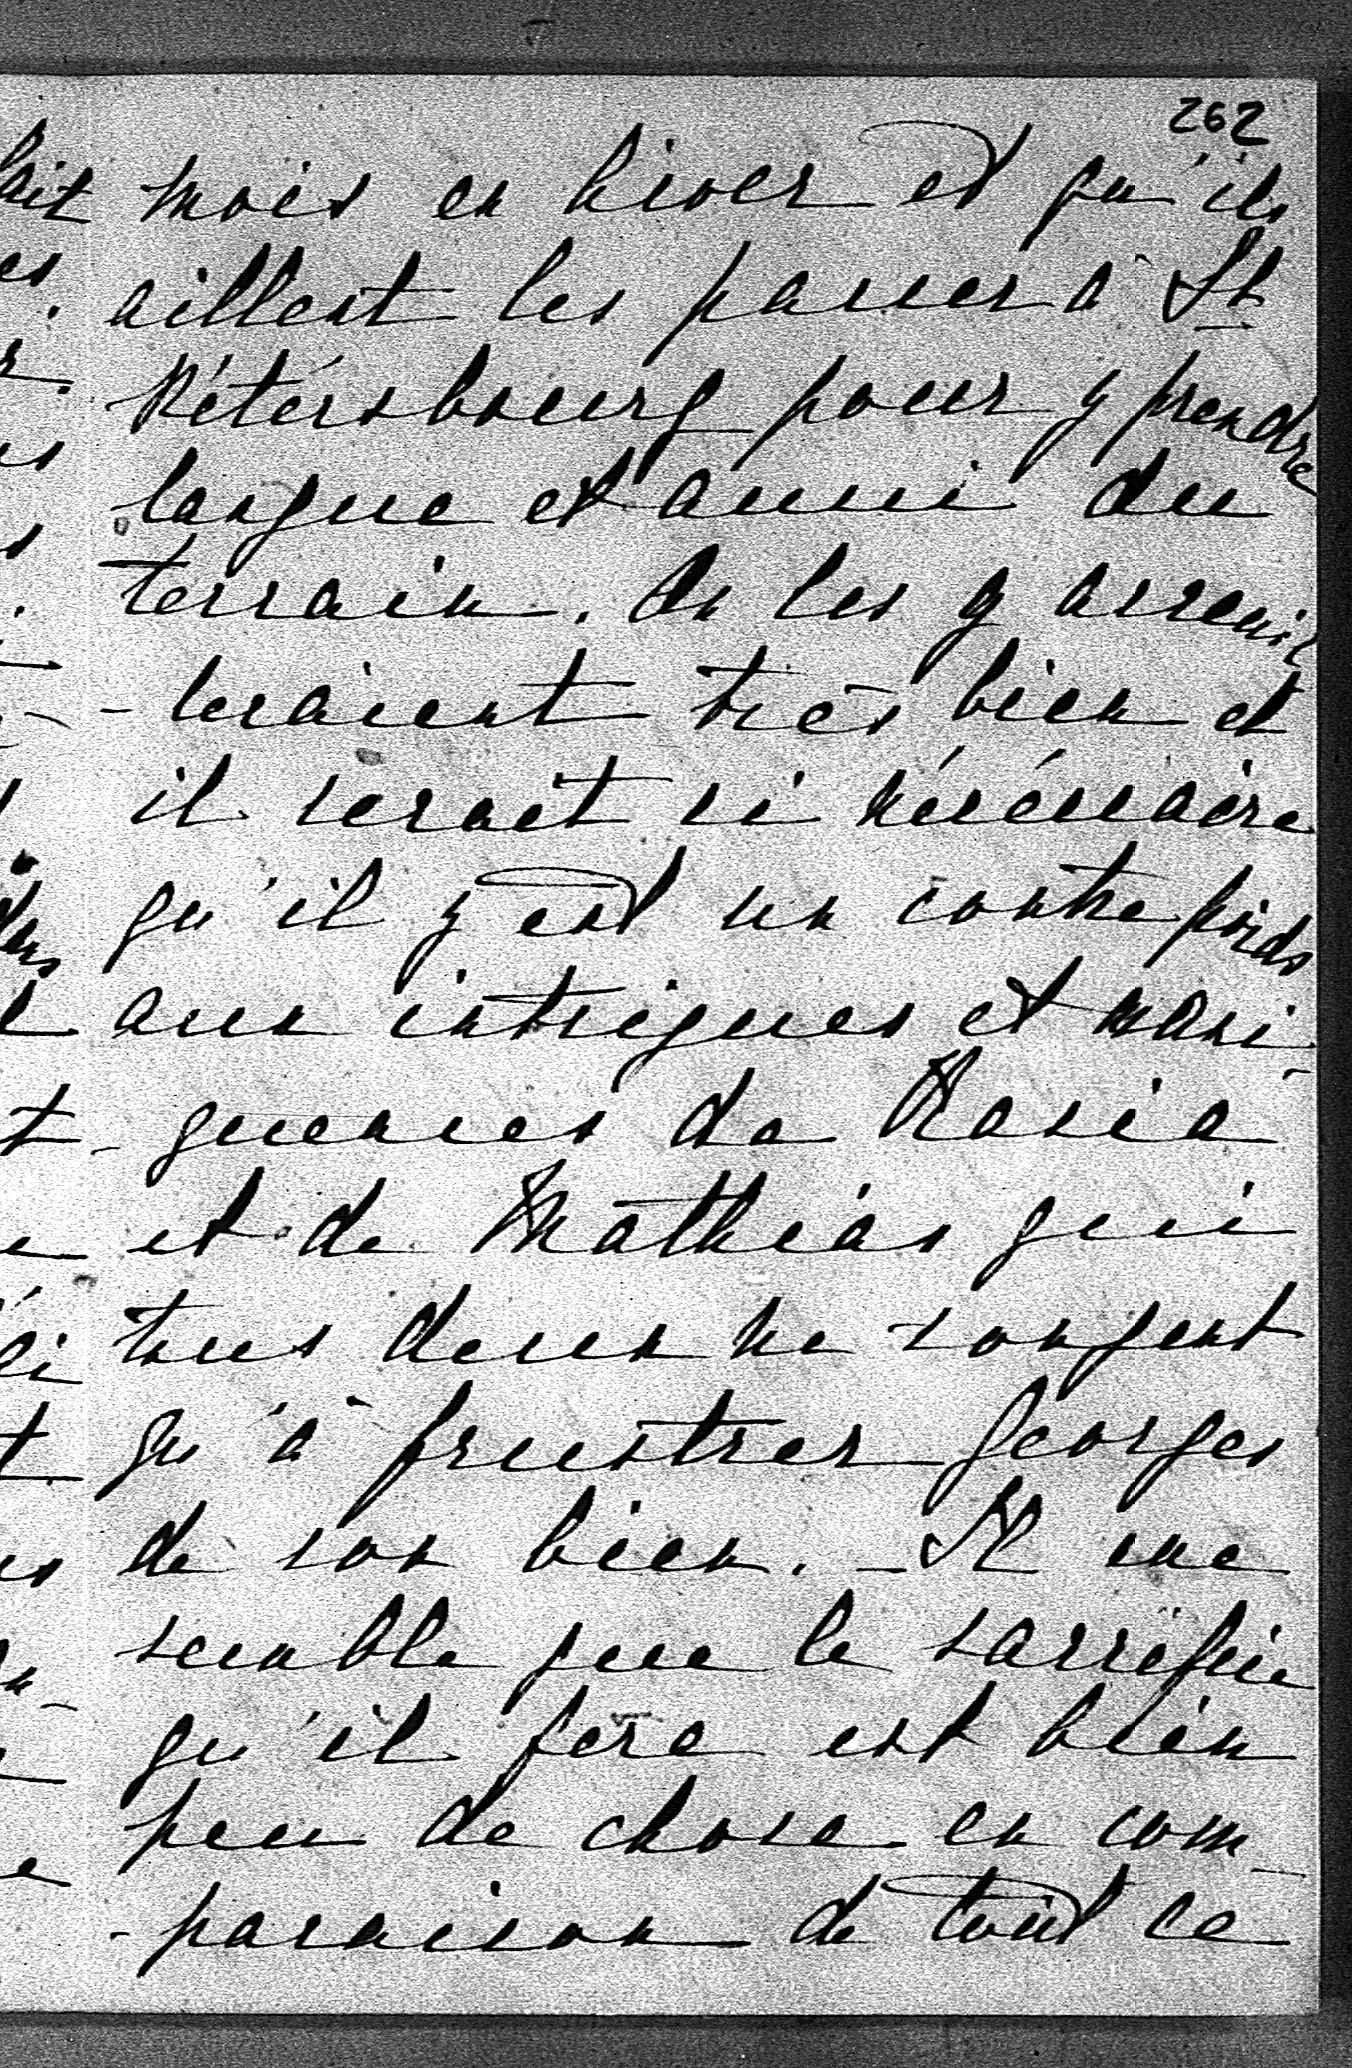 262
mois en hiver et qu'ils
aillent les passer à St
Pétérsbourg pour y prendre
langue et aussi du
terrain. On les y accueil
-leraient très bien et
il serait si nécéssaire
qu'il y eut un contre poids
aux intrigues et mani
-guences de Kasia
et de Mathias qui
tous deux ne songent
qu'à frustrer Georges
de son bien. - Il me
semble que le sacrifice
qu'il fera est bien
peu de chose en com-
-paraison de tout ce